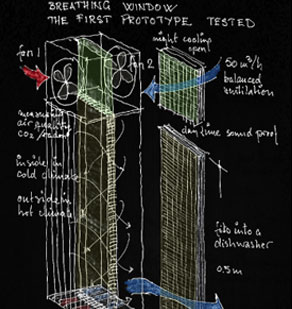 BREATHING WINDOW
THE FIRST PROTOTYPE TESTED
fan 1
fan 2
night cooling
open
50 m³/h
balanced
ventilation
measured
air quality
CO₂
day time sound proof
inside in
cold climate
outside in
hot climate
fits into a
dishwasher
0,5m